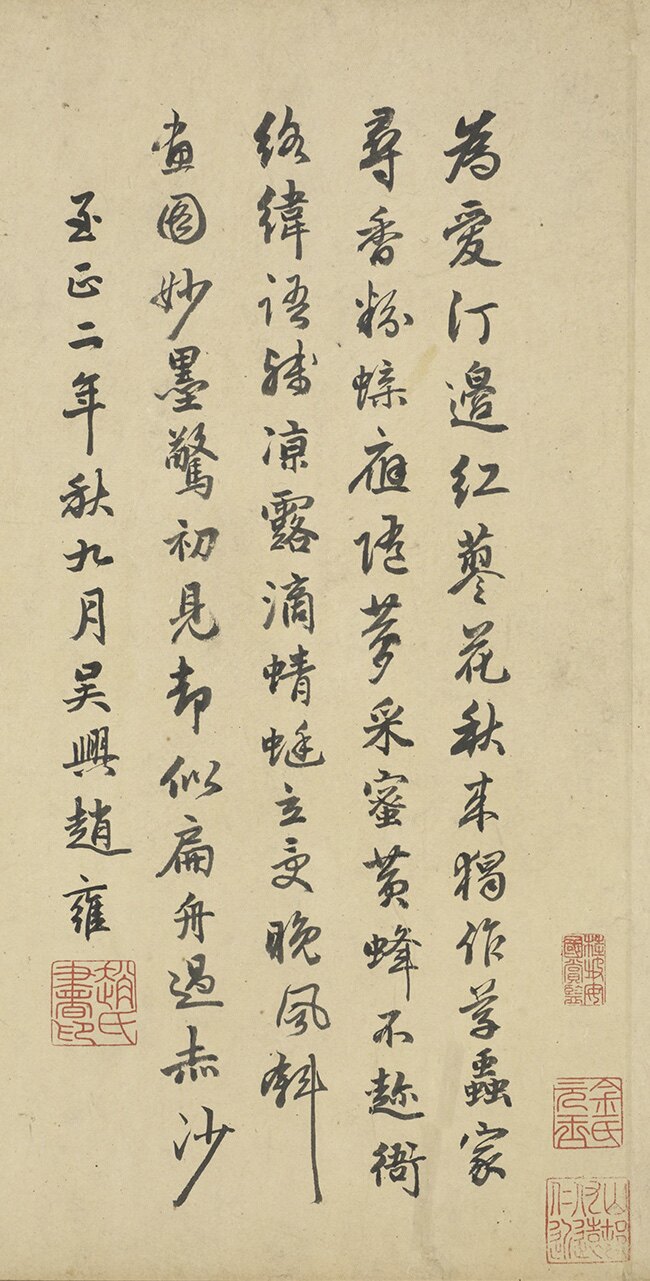 為愛汀邊紅蓼花秋来獨作草蟲家
尋香粉蝶應隨夢采蜜黃蜂不趂衙
絡緯語殘凉露滴蜻蜓立受晚風斜
畫圖妙墨驚初見却似扁舟過赤沙
至正二年秋九月吳興趙雍
趙氏書印
桂坡安國賞鑑